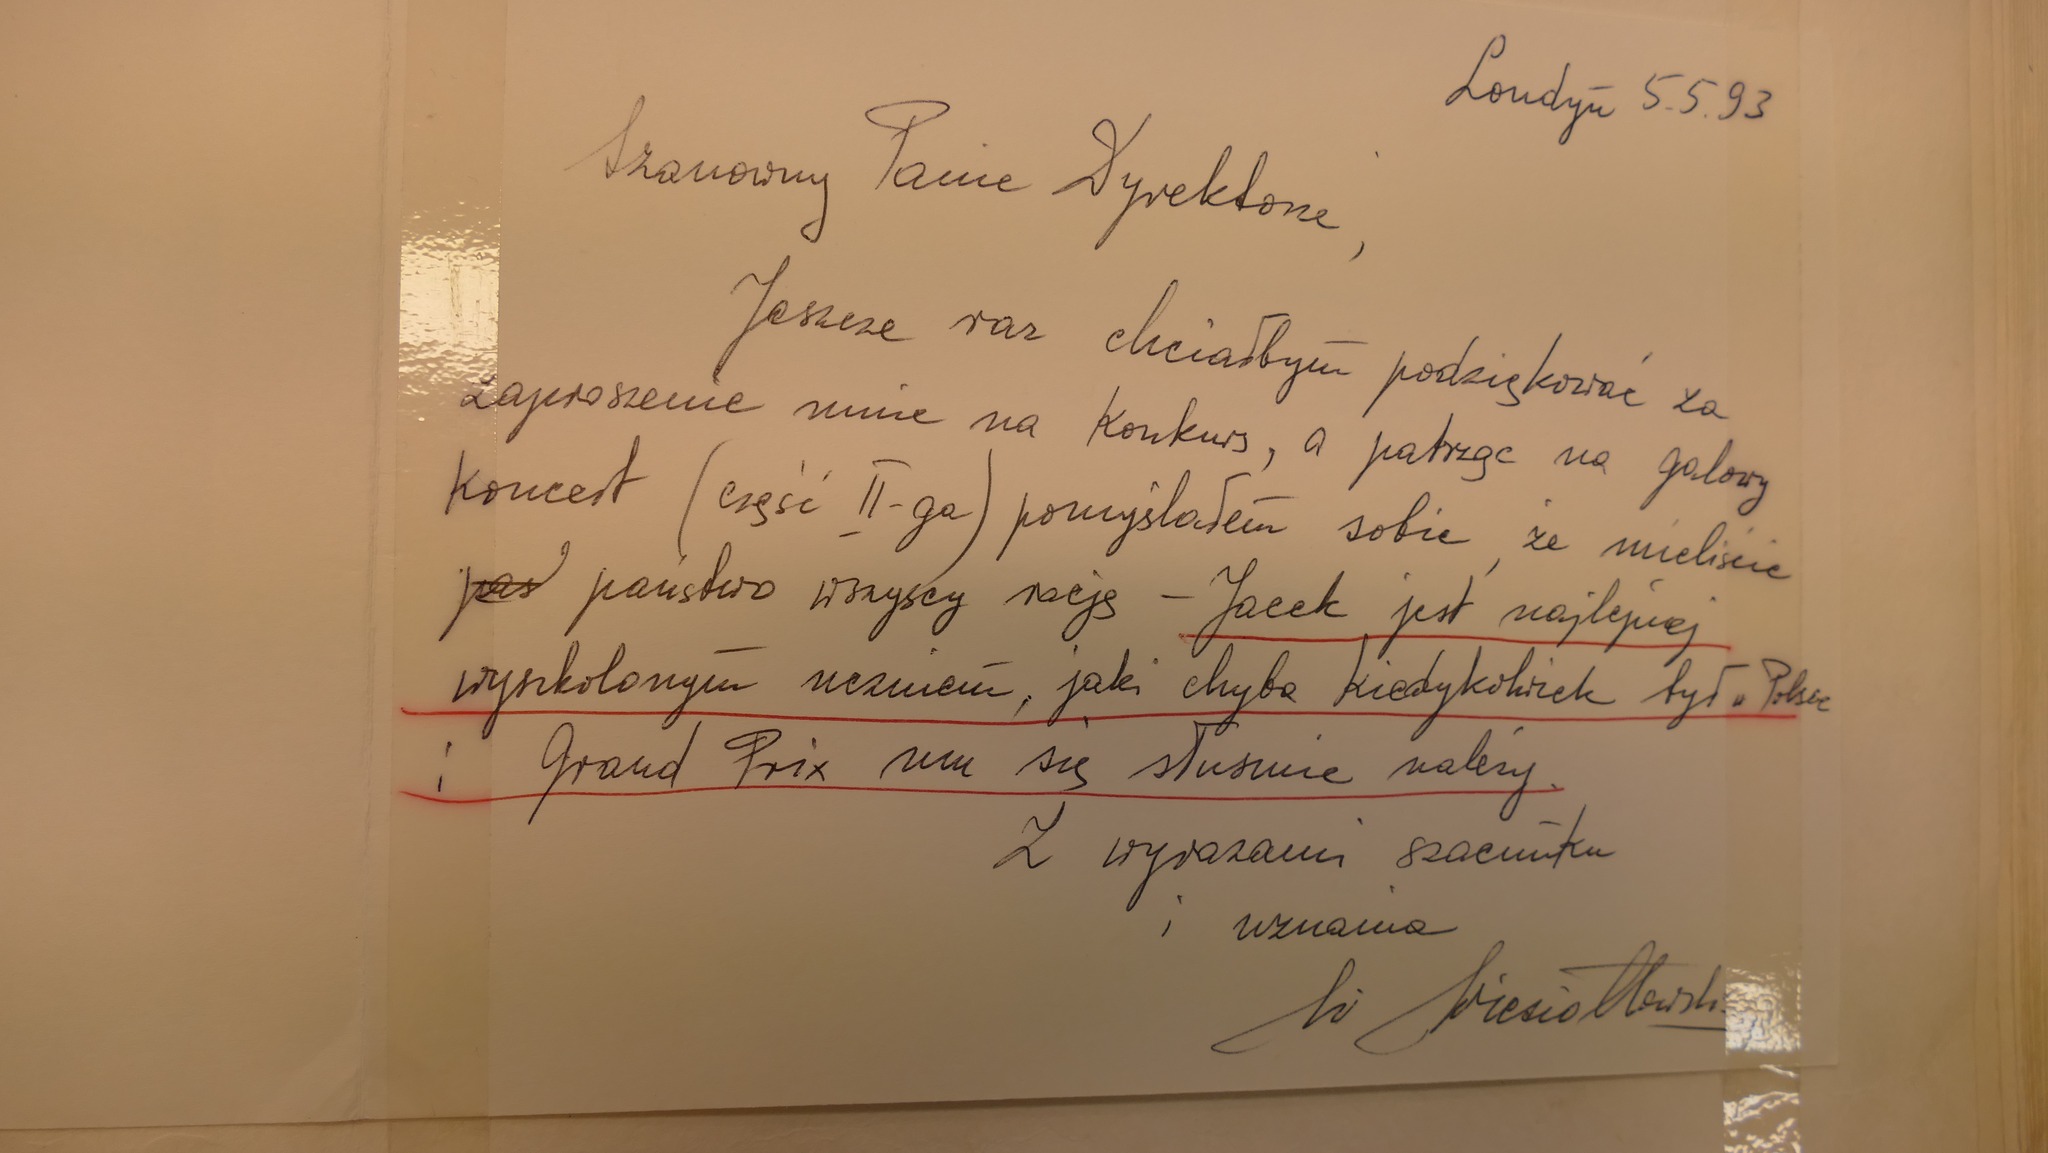 Londyn 5.5.93
Szanowny Panie Dyrektorze,
Jeszcze raz chciałbym podziękować za
zaproszenie mnie na konkurs, a patrząc na galowy
koncert (część II-ga) pomyślałem sobie, że mieliście
państwo wszyscy rację – Jacek jest najlepiej
wyszkolonym uczniem, jaki chyba kiedykolwiek był w Polsce
i Grand Prix mu się słusznie należy.
Z wyrazami szacunku
i uznania